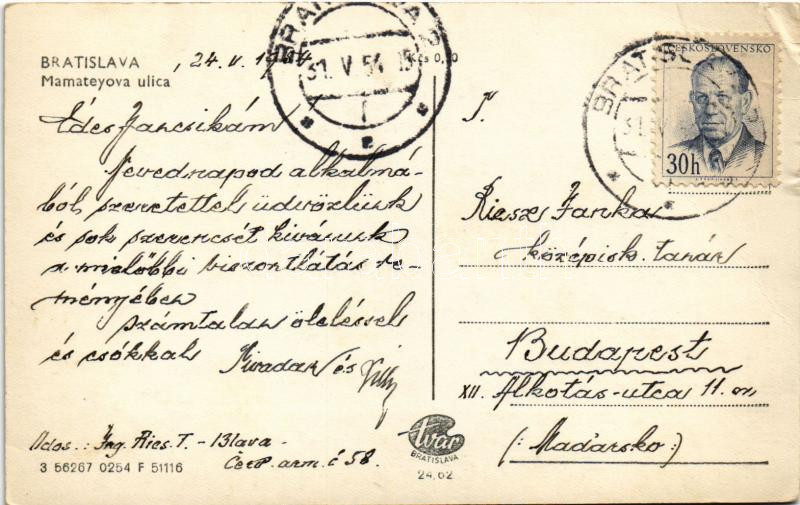 BRATISLAVA
Mamateyova ulica
24. V. 1954.
Édes Jancsikám
Nevednapod alkalmá-
ból szeretettel üdvözlünk
és sok szerencsét kivánunk
a mielőbbi viszontlátás re-
ményében
számtalan öleléssel
és csókkal: Tivadar és Lilly
Odos.: Ing. Ries. T. - Blava
Červ. arm. č 58.
3 56267 0254 F 51116
BRATISLAVA 2
31. V. 54
Kčs 0,
BRATISL
ČESKOSLOVENSKO
30h
T.
Riesz Janka
középisk. tanár
Budapest
XII. Alkotás-utca 11.
(: Maďarsko :)
tvar
BRATISLAVA
24,62